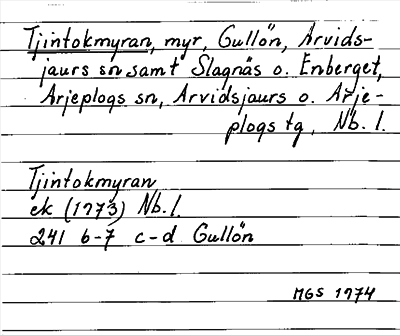 Tjintokmyran, myr, Gullön, Arvids-
jaurs sn samt Slagnäs o. Enberget,
Arjeplogs sn, Arvidsjaurs o. Arje-
plogs tg, Nb. l.
Tjintokmyran
ek (1973) Nb. l.
24I 6-7 c-d Gullön
MGS 1974